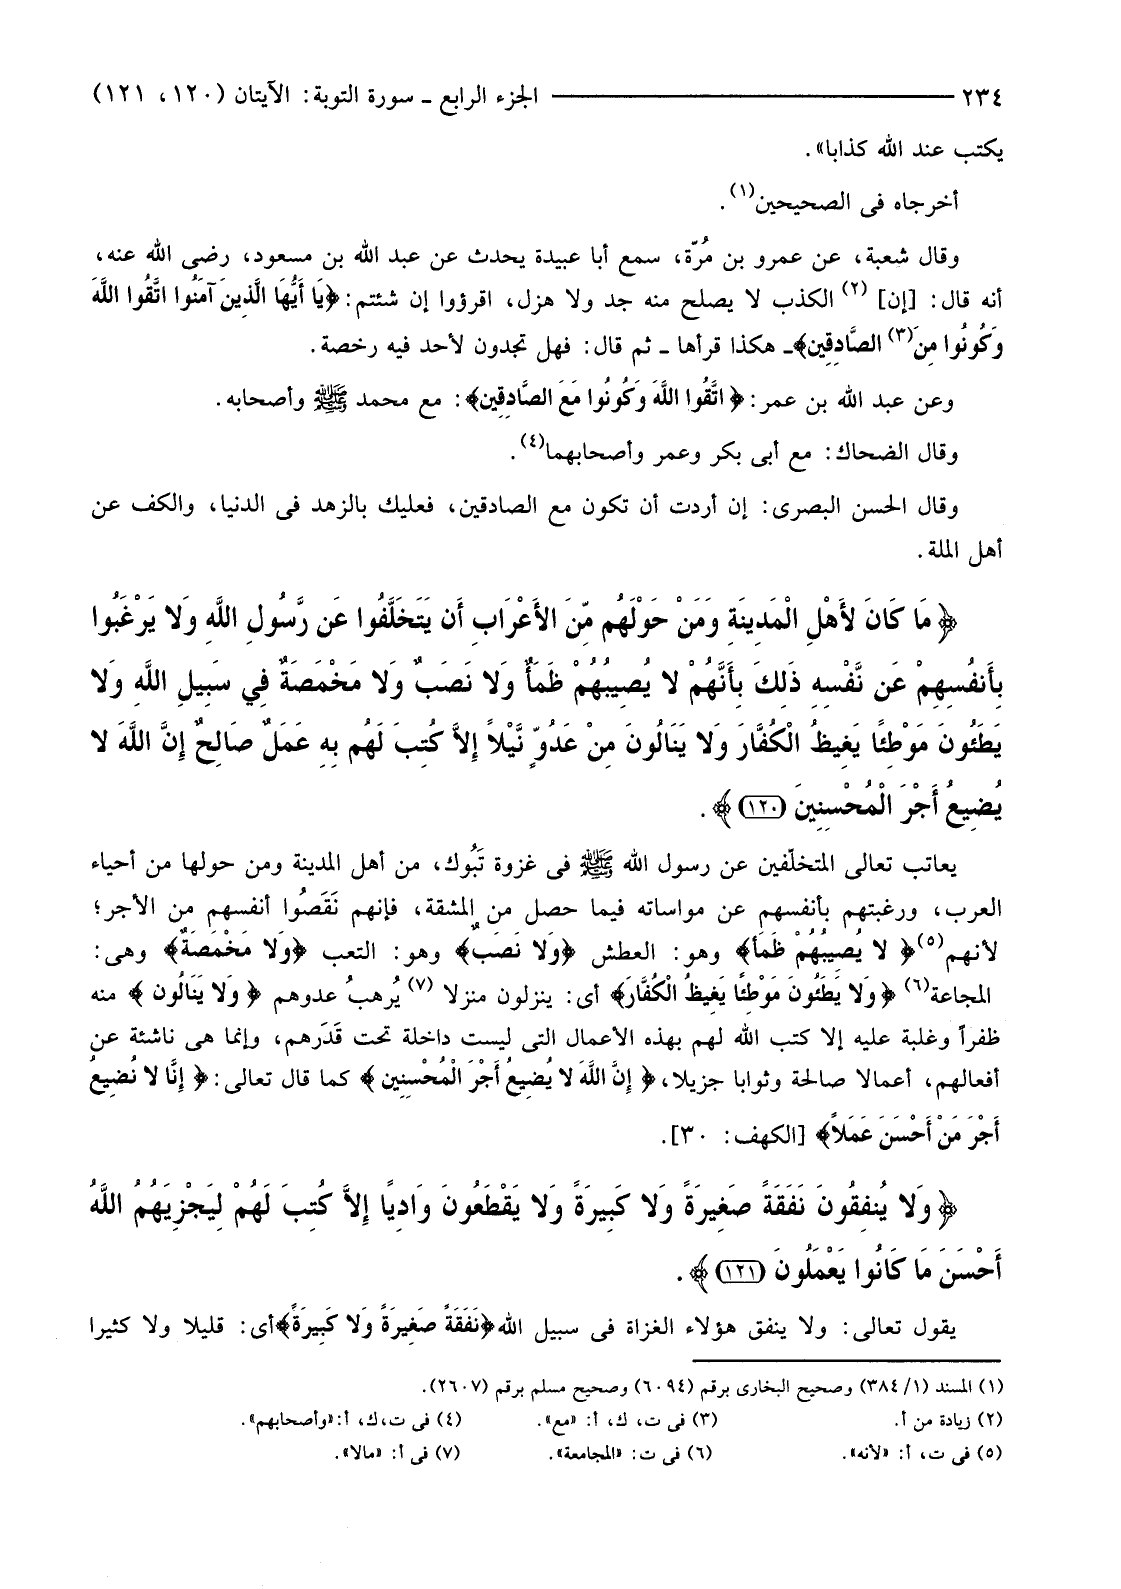 ٢٣٤ ـــــــ الجزء الرابع ـ سورة التوبة: الآيتان (١٢٠، ١٢١)
يكتب عند الله كذابا».
أخرجاه فى الصحيحين(١).
وقال شعبة، عن عمرو بن مُرّة، سمع أبا عبيدة يحدث عن عبد الله بن مسعود، رضى الله عنه،
أنه قال: [إن] (٢) الكذب لا يصلح منه جد ولا هزل، اقرؤوا إن شئتم: ﴿يَا أَيُّهَا الَّذِينَ آمَنُوا اتَّقُوا اللَّهَ
وَكُونُوا مِنَ(٣) الصَّادِقِينَ﴾ـ هكذا قرأها ـ ثم قال: فهل تجدون لأحد فيه رخصة.
وعن عبد الله بن عمر: ﴿ اتَّقُوا اللَّهَ وَكُونُوا مَعَ الصَّادِقِينَ﴾: مع محمد ﷺ وأصحابه.
وقال الضحاك: مع أبى بكر وعمر وأصحابهما(٤).
وقال الحسن البصرى: إن أردت أن تكون مع الصادقين، فعليك بالزهد فى الدنيا، والكف عن
أهل الملة.
﴿ مَا كَانَ لأَهْلِ الْمَدِينَةِ وَمَنْ حَوْلَهُم مِّنَ الأَعْرَابِ أَن يَتَخَلَّفُوا عَن رَّسُولِ اللَّهِ وَلا يَرْغَبُوا
بِأَنفُسِهِمْ عَن نَّفْسِهِ ذَلِكَ بِأَنَّهُمْ لا يُصِيبُهُمْ ظَمَأٌ وَلا نَصَبٌ وَلا مَخْمَصَةٌ فِي سَبِيلِ اللَّهِ وَلا
يَطَئُونَ مَوْطِئًا يَغِيظُ الْكُفَّارَ وَلا يَنَالُونَ مِنْ عَدُوٍّ نَّيْلاً إِلاَّ كُتِبَ لَهُم بِهِ عَمَلٌ صَالِحٌ إِنَّ اللَّهَ لا
يُضِيعُ أَجْرَ الْمُحْسِنِينَ (١٢٠) ﴾.
يعاتب تعالى المتخلّفين عن رسول الله ﷺ فى غزوة تَبُوك، من أهل المدينة ومن حولها من أحياء
العرب، ورغبتهم بأنفسهم عن مواساته فيما حصل من المشقة، فإنهم نَقَصُوا أنفسهم من الأجر؛
لأنهم(٥) ﴿ لا يُصِيبُهُمْ ظَمَأٌ﴾ وهو: العطش ﴿وَلا نَصَبٌ﴾ وهو: التعب ﴿وَلا مَخْمَصَةٌ﴾ وهى:
المجاعة(٦) ﴿ وَلا يَطَئُونَ مَوْطِئًا يَغِيظُ الْكُفَّارَ﴾ أى: ينزلون منزلا (٧) يُرهبُ عدوهم ﴿ وَلا يَنَالُونَ ﴾ منه
ظفراً وغلبة عليه إلا كتب الله لهم بهذه الأعمال التى ليست داخلة تحت قَدَرهم، وإنما هى ناشئة عن
أفعالهم، أعمالا صالحة وثوابا جزيلا، ﴿ إِنَّ اللَّهَ لا يُضِيعُ أَجْرَ الْمُحْسِنِين ﴾ كما قال تعالى: ﴿ إِنَّا لا نُضِيعُ
أَجْرَ مَنْ أَحْسَنَ عَمَلاً﴾ [الكهف: ٣٠].
﴿ وَلا يُنفِقُونَ نَفَقَةً صَغِيرَةً وَلا كَبِيرَةً وَلا يَقْطَعُونَ وَادِيًا إِلاَّ كُتِبَ لَهُمْ لِيَجْزِيَهُمُ اللَّهُ
أَحْسَنَ مَا كَانُوا يَعْمَلُونَ (١٢١) ﴾.
يقول تعالى: ولا ينفق هؤلاء الغزاة فى سبيل الله ﴿نَفَقَةً صَغِيرَةً وَلا كَبِيرَةً﴾أى: قليلا ولا كثيرا
(١) المسند (١/ ٣٨٤) وصحيح البخارى برقم (٦٠٩٤) وصحيح مسلم برقم (٢٦٠٧).
(٢) زيادة من أ. (٣) فى ت، ك، أ: «مع». (٤) فى ت،ك، أ:«وأصحابهم».
(٥) فى ت، أ: «لأنه». (٦) فى ت: «المجامعة». (٧) فى أ: «مالا».